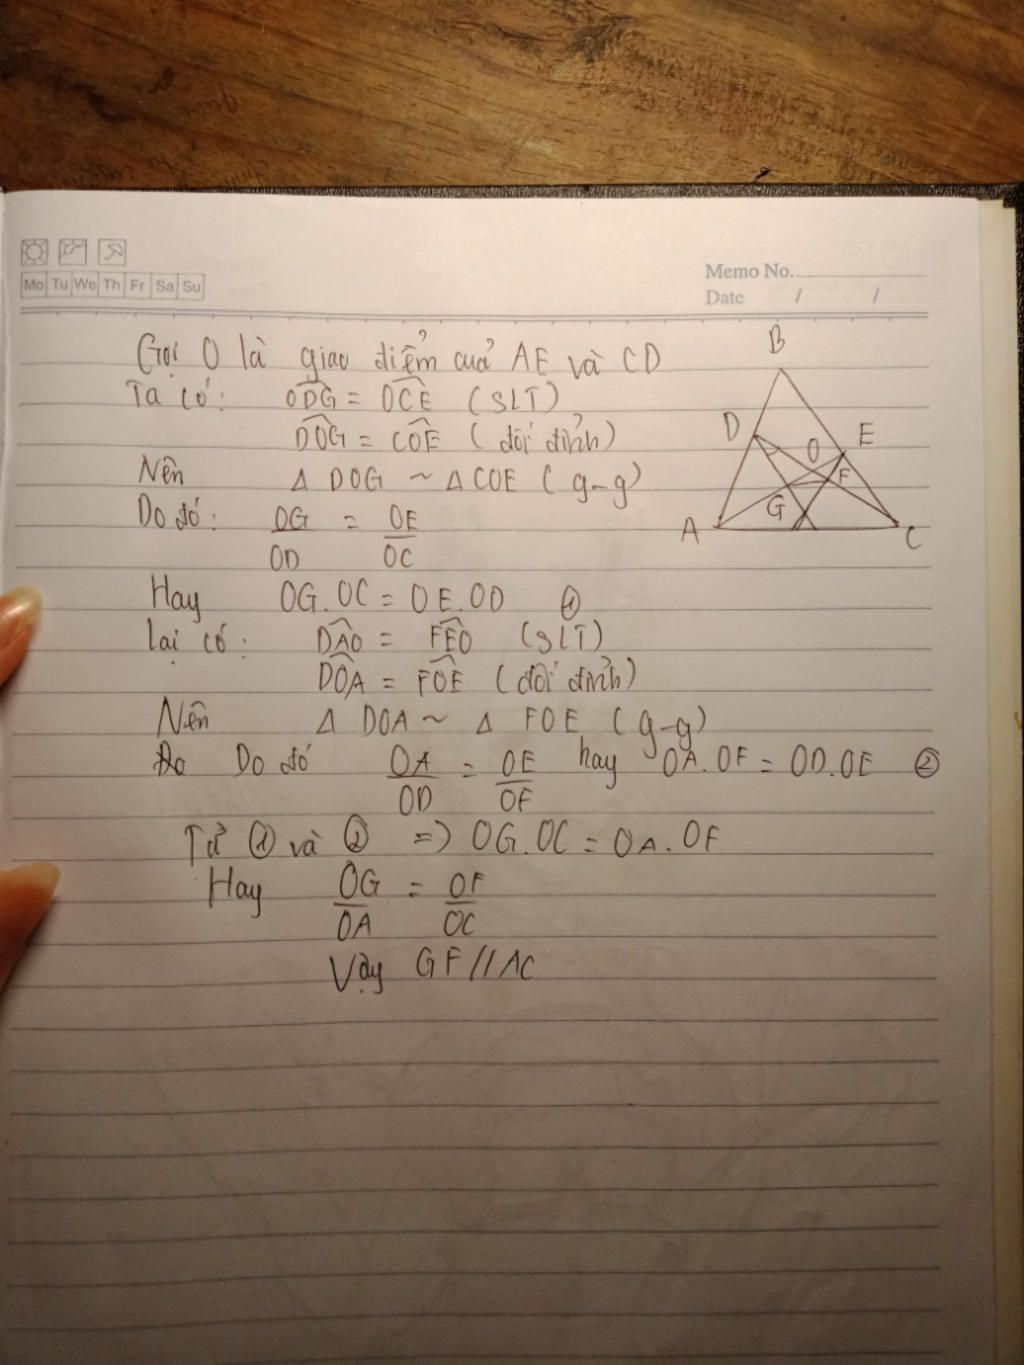 Mo Tu We Th Fr Sa Su
Memo No.
Date / /
Gọi O là giao điểm cuả AE và CD
Ta có: ODG = OCE (SLT)
DOG = COE (đối đỉnh)
Nên Δ DOG ~ Δ COE (g-g)
Do đó: OG/OD = OE/OC
Hay OG.OC = OE.OD ①
lại có: DAO = FEO (SLT)
DOA = FOE (đối đỉnh)
Nên Δ DOA ~ Δ FOE (g-g)
Do đó OA/OD = OE/OF hay OA.OF = OD.OE ②
Từ ① và ② => OG.OC = OA.OF
Hay OG/OA = OF/OC
Vậy GF // AC
B
D
E
O
F
G
A
C